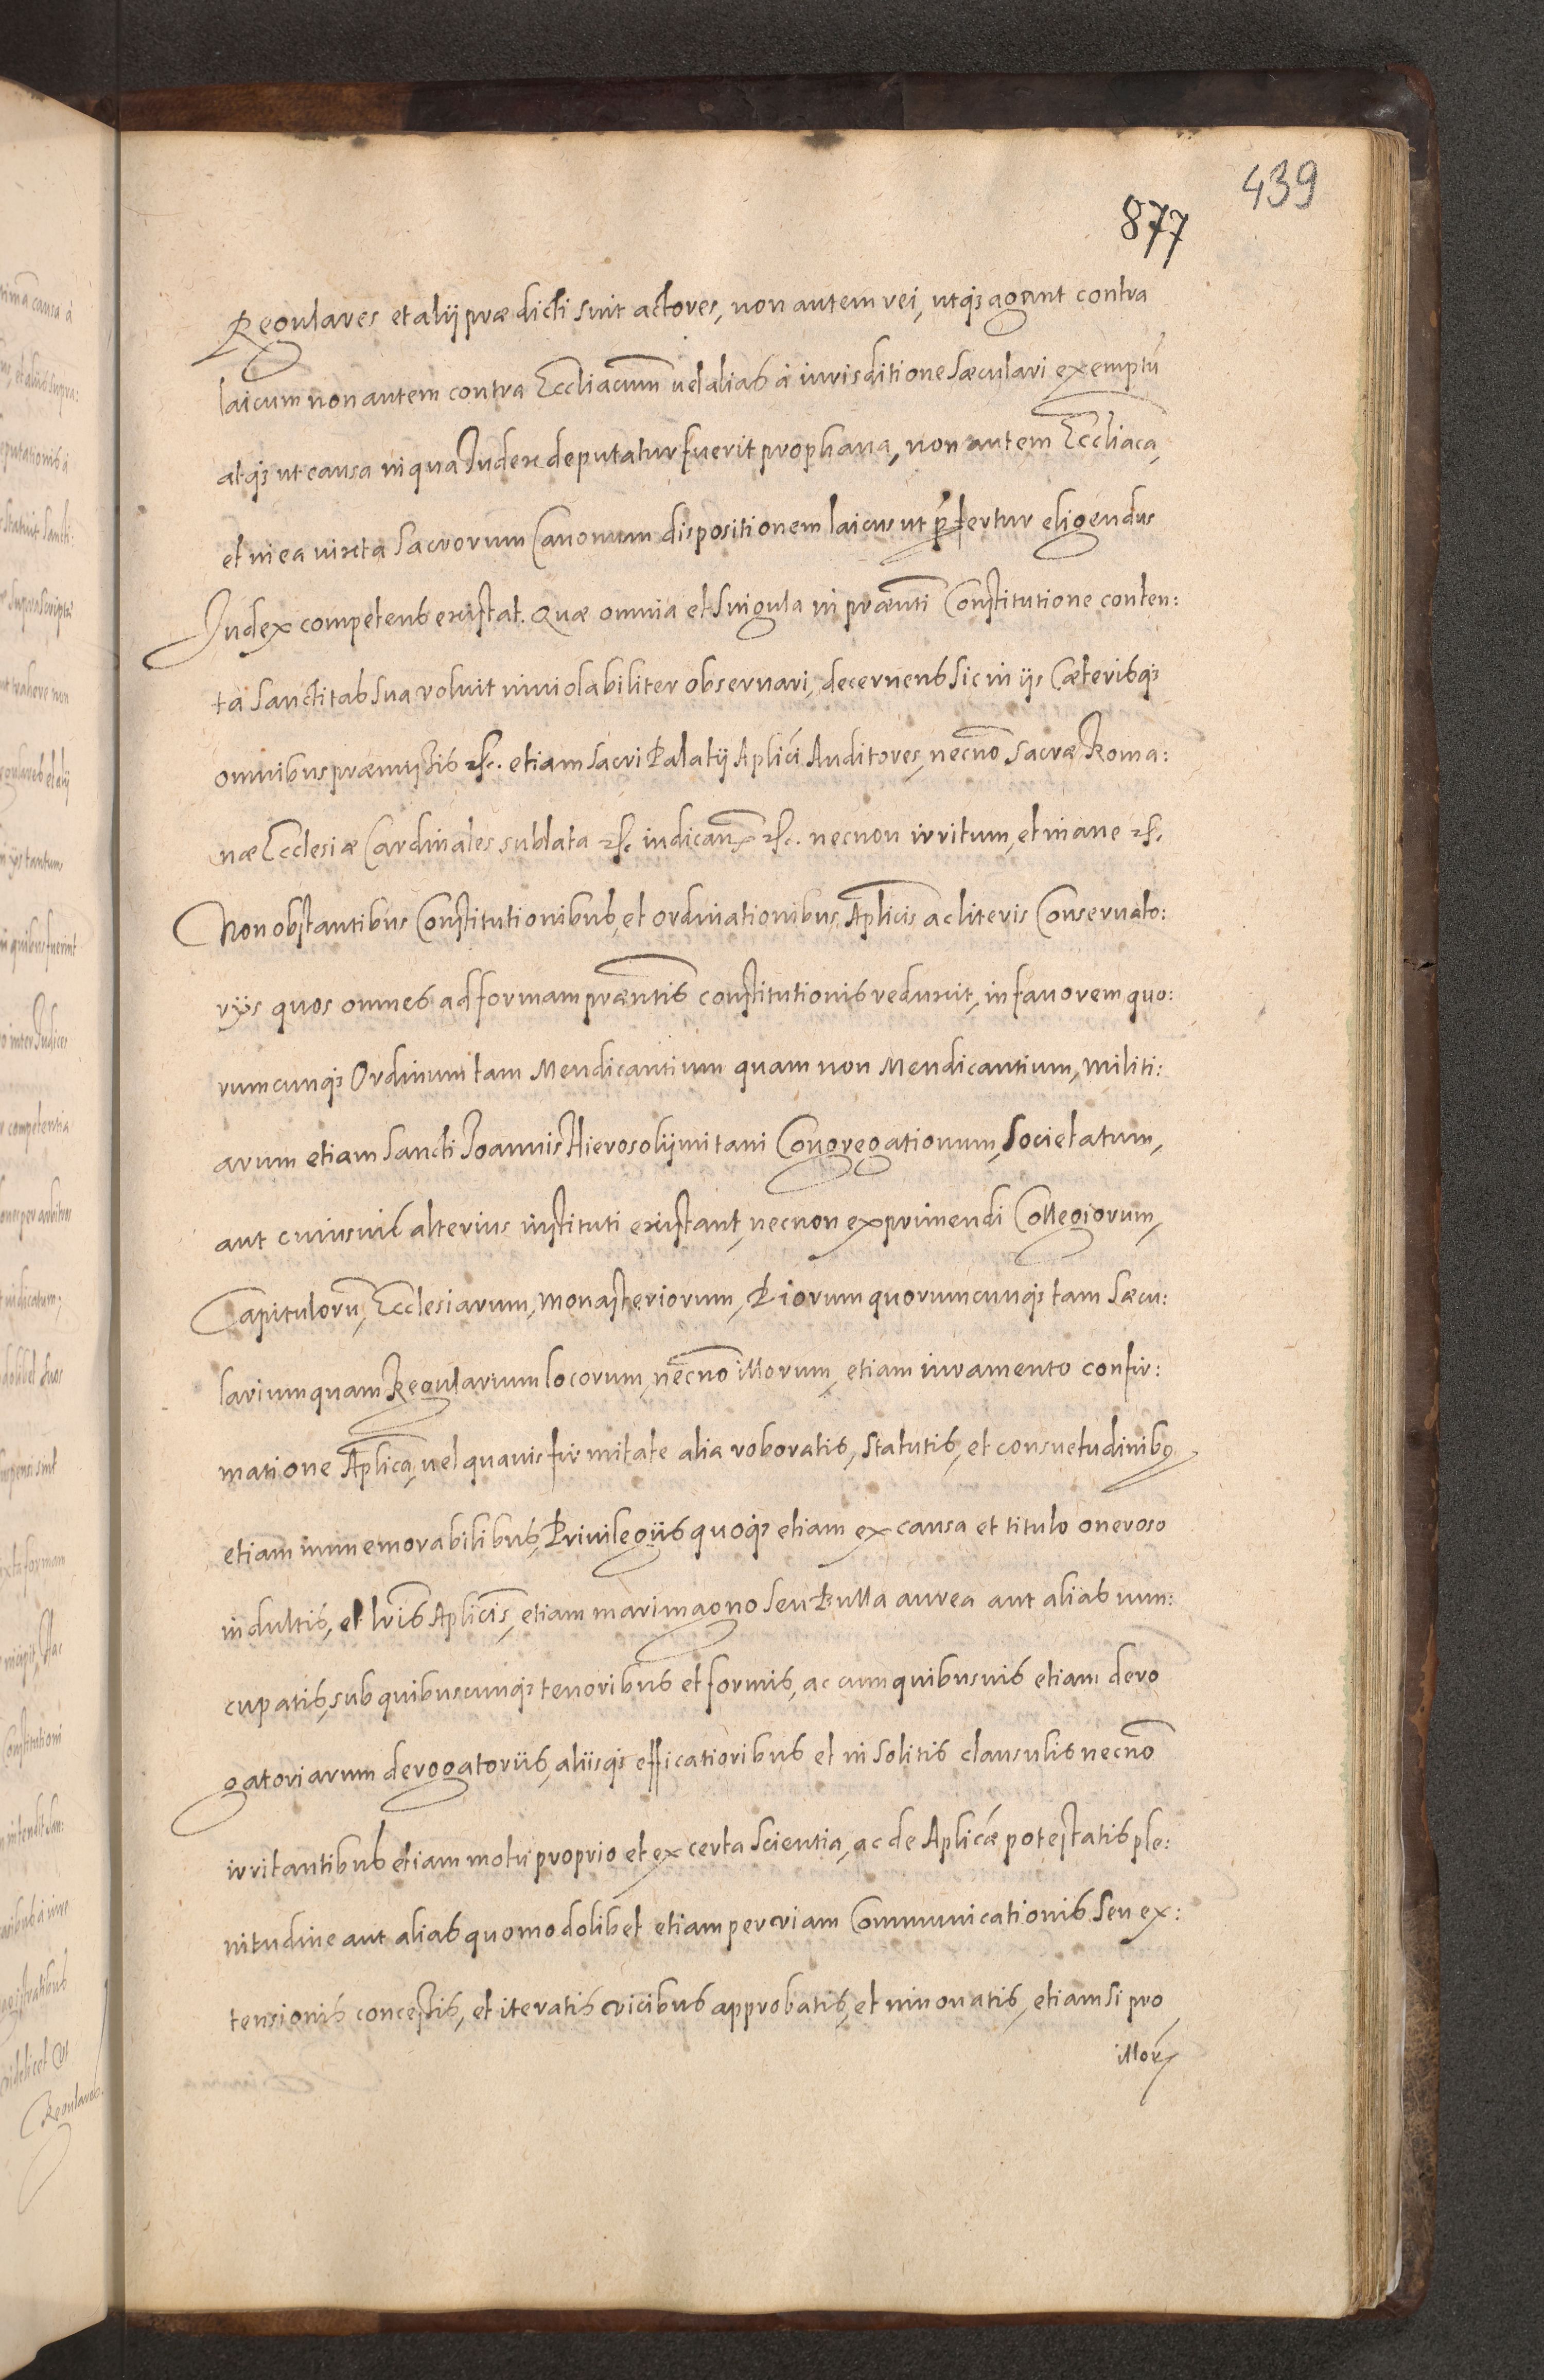 439
877
Regulares et alij prædicti sint actores, non autem rei, utqȝ agant contra
laicum non autem contra Eccliacum̃ vel alias à iurisditione sæculari exemptũ
atqȝ ut causa in qua Iudex deputatur fuerit prophana, non autem Eccliaca,
et in ea iuxta sacrorum Canonum dispositionem laicus ut p̃fertur eligendus
Iudex competens existat. Quæ omnia et singula in præñti Constitutione conten:
ta Sanctitas sua voluit inviolabiliter observari, decernens sic in ijs Cæterisqȝ
omnibus præmissis &c. etiam sacri Palatij Aplici Auditores, necnõ sacræ Roma:
næ Ecclesiæ Cardinales, sublata &c iudican̄ &c. necnon irritum, et inane &c.
Non obstantibus Constitutionibus, et ordinationibus Aplicis ac literis Conservato:
rijs quos omnes ad formam præñtis constitutionis reduxit, in favorem quo:
rumcunqȝ Ordinum tam Mendicantium quam non Mendicantium, Militi:
arum etiam Sancti Ioannis Hierosolijmitani Congregationum, Societatum,
aut cuiusvis alterius instituti existant, necnon exprimendi Collegiorum,
Capitulorũ, Ecclesiarum, Monasteriorum, Piorum quorumcunqȝ tam Sæcu:
larium quam Regularium locorum, necnõ illorum, etiam iuramento confir:
matione Aplica, vel quavis firmitate alia roboratis, statutis, et consuetudinibꝫ
etiam immemorabilibus, Privilegiis quoqȝ etiam ex causa et titulo oneroso
indultis, et lris Aplicis, etiam mari magno seu Bulla aurea aut alias nun:
cupatis, sub quibuscunqȝ tenoribus et formis, ac cum quibusvis etiam dero
gatoriarum derogatoriis, aliisqȝ efficatioribus et insolitis clausulis necnõ
irritantibus etiam motu proprio et ex certa scientia, ac de Aplicæ potestatis ple:
nitudine aut alias quomodolibet etiam per viam Communicationis seu ex:
tensionis concessis, et iteratis vicibus approbatis, et innovatis, etiam si pro
illorȝ